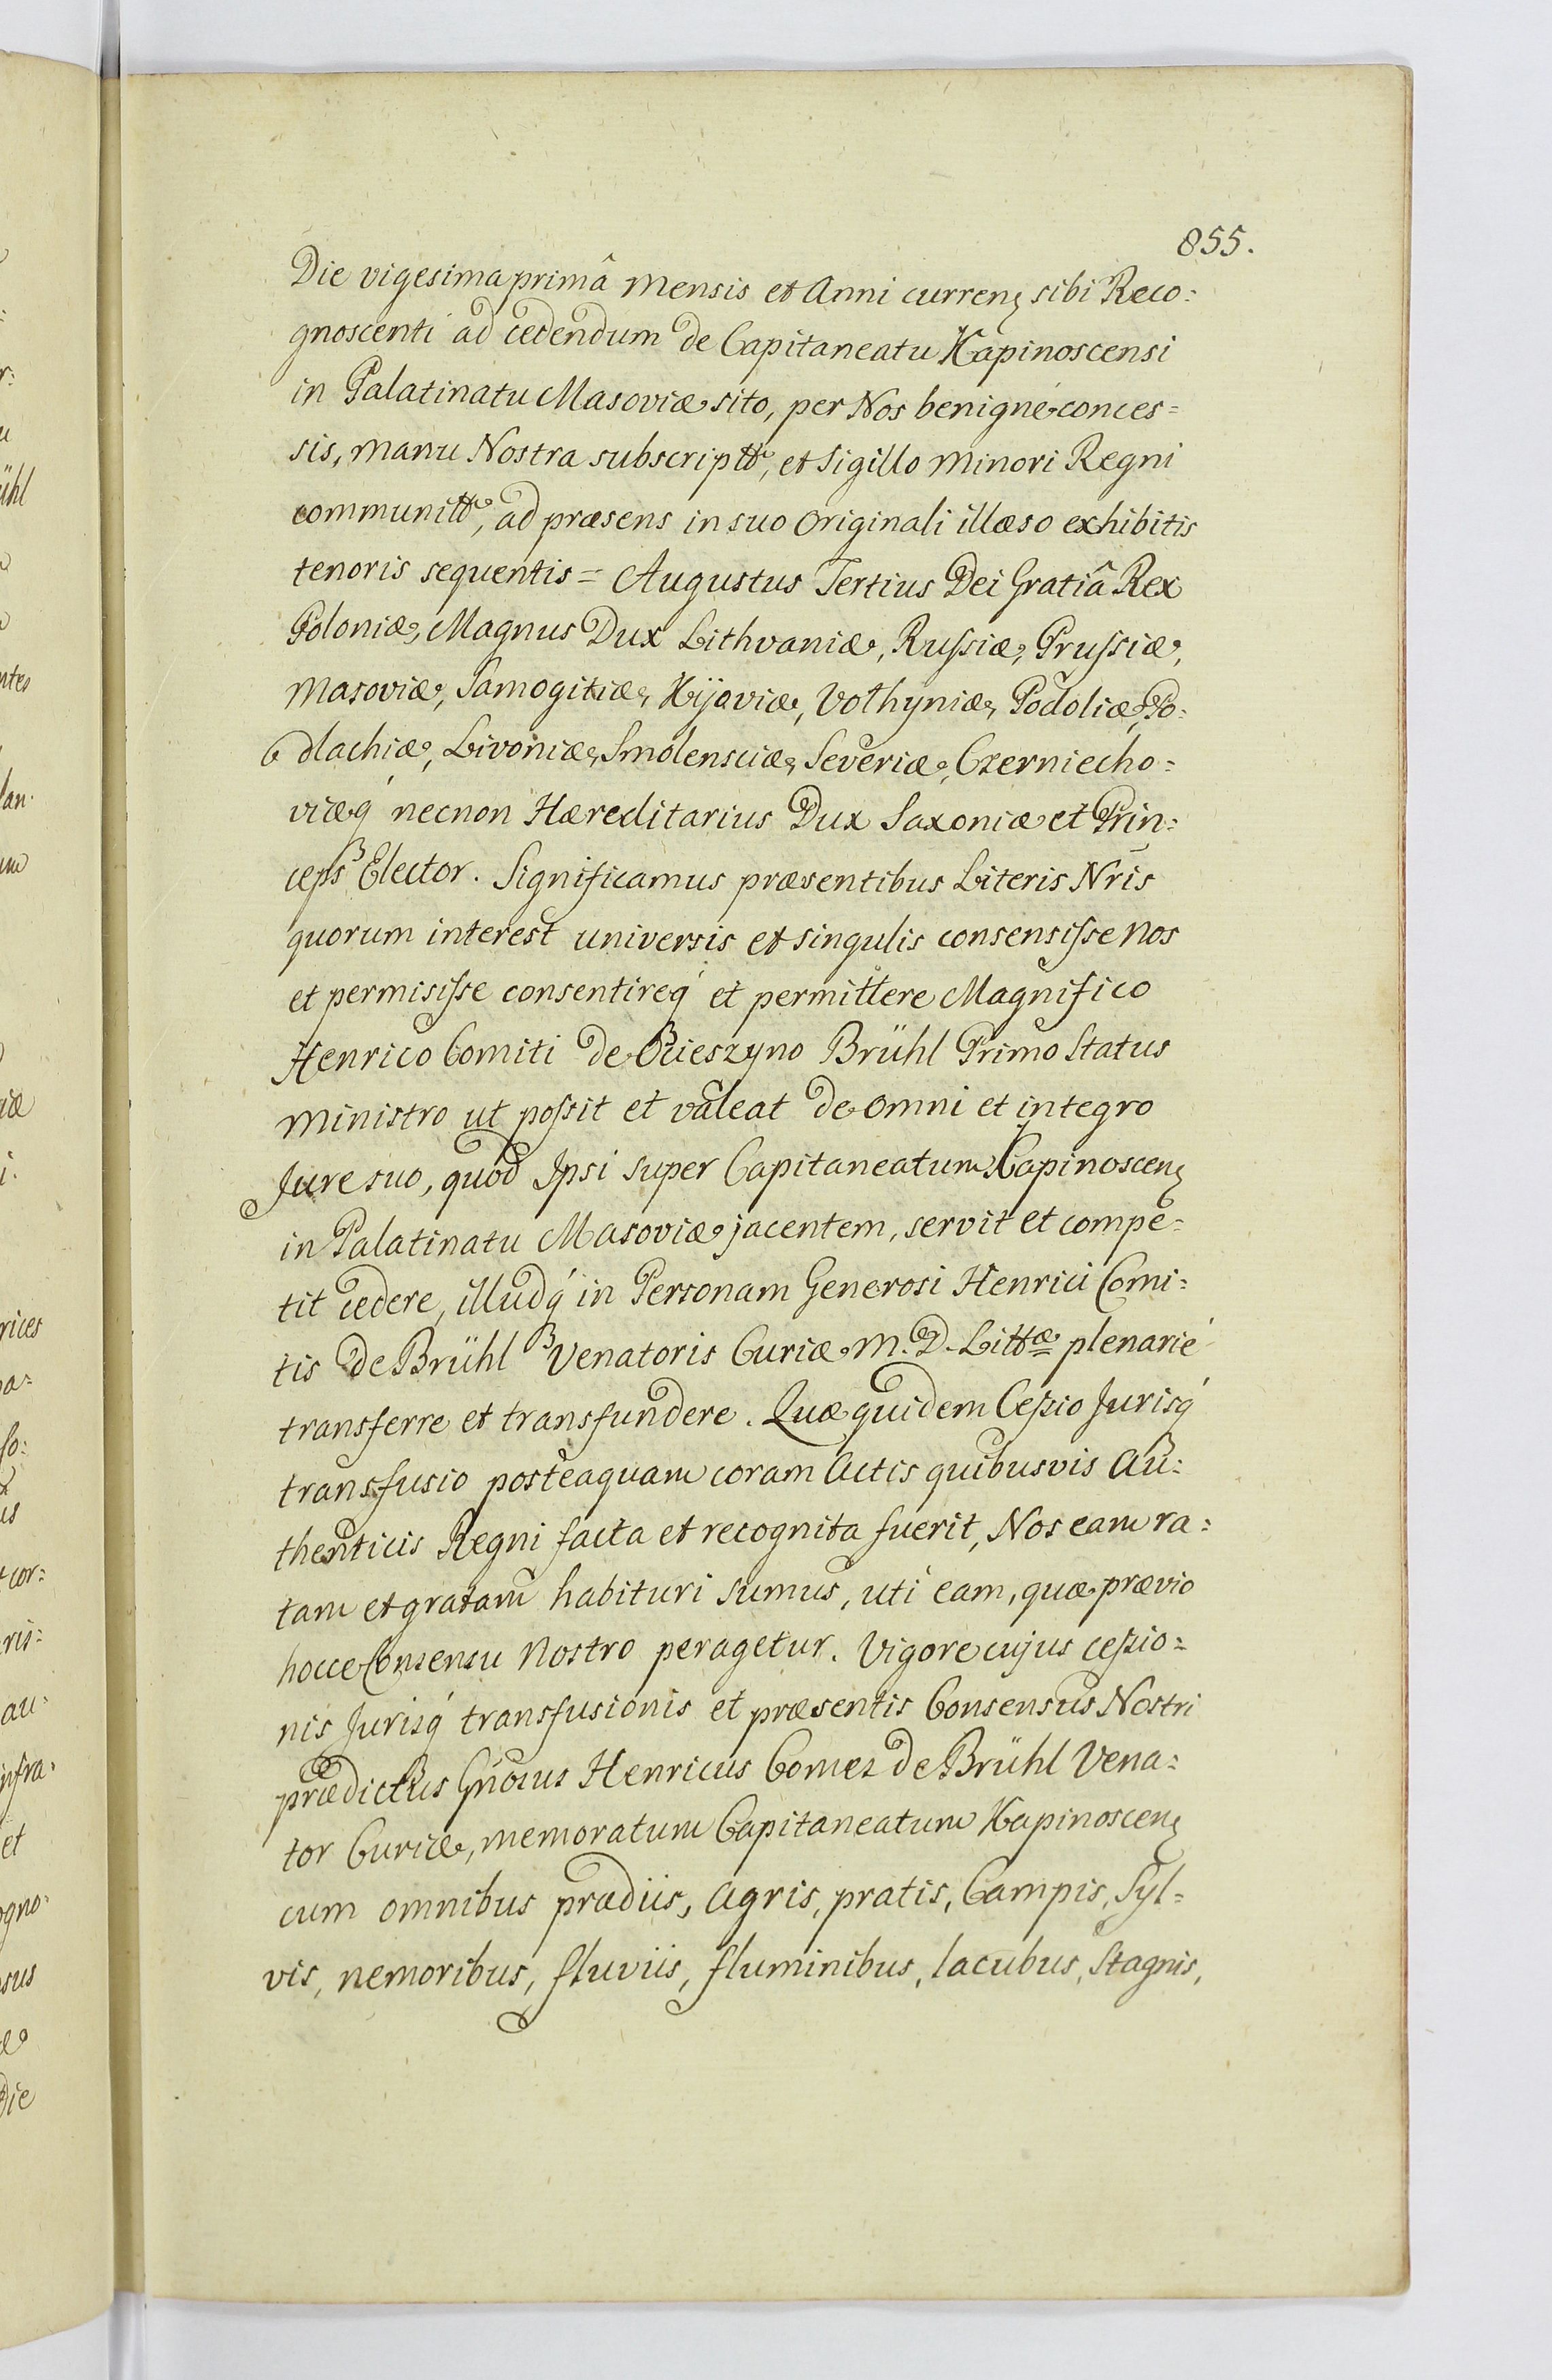 855.
Die vigesima primâ mensis et Anni curren[ sibi Reco:
gnoscenti ad cedendum de Capitaneatu Kapinoscensi
in Palatinatu Masoviæ sito, per Nos benigné conces=
sis, manu Nostra subscriptt, et Sigillo minori Regni
communitt, ad præsens in suo originali illæso exhibitis
tenoris sequentis = Augustus Tertius Dei Gratiâ Rex
Poloniæ, Magnus Dux Lithvaniæ, Russiæ, Prussiæ,
Masoviæ, Samogitiæ, Kijoviæ, Volhyniæ, Podoliæ, Po:
dlachiæ, Livoniæ, Smolensciæ, Severiæ, Czerniecho=
viæq́ necnon Hæreditarius Dux Saxoniæ et Prin:
ceps Elector. Significamus præsentibus Literis Nr̃is
quorum interest universis et singulis consensisse nos
et permisisse consentireq́ et permittere Magnifico
Henrico Comiti de Cieszyno Brühl Primo Status
Ministro ut possit et valeat de omni et integro
Jure suo, quod Ipsi super Capitaneatum Kapinoscen[
in Palatinatu Masoviæ jacentem, servit et compe=
tit cedere, illudq́ in Personam Generosi Henrici Comi:
tis de Brühl Venatoris Curiæ M. D. Littæ plenarié
transferre et transfundere. Quæ quidem Cessio Jurisq́
transfusio posteaquam coram Actis quibusvis Au:
thenticis Regni facta et recognita fuerit, Nos eam ra:
tam et gratam habituri sumus, uti eam, quæ prævio
hocce Consensu Nostro peragetur. Vigore cujus cessio=
nis Jurisq́ transfusionis et præsentis Consensus Nostri
prædictus Gñosus Henricus Comes de Brühl Vena:
tor Curiæ, memoratum Capitaneatum Kapinoscen[
cum omnibus prædiis, Agris, pratis, Campis, Syl=
vis, nemoribus, fluviis, fluminibus, lacubus, Stagnis,